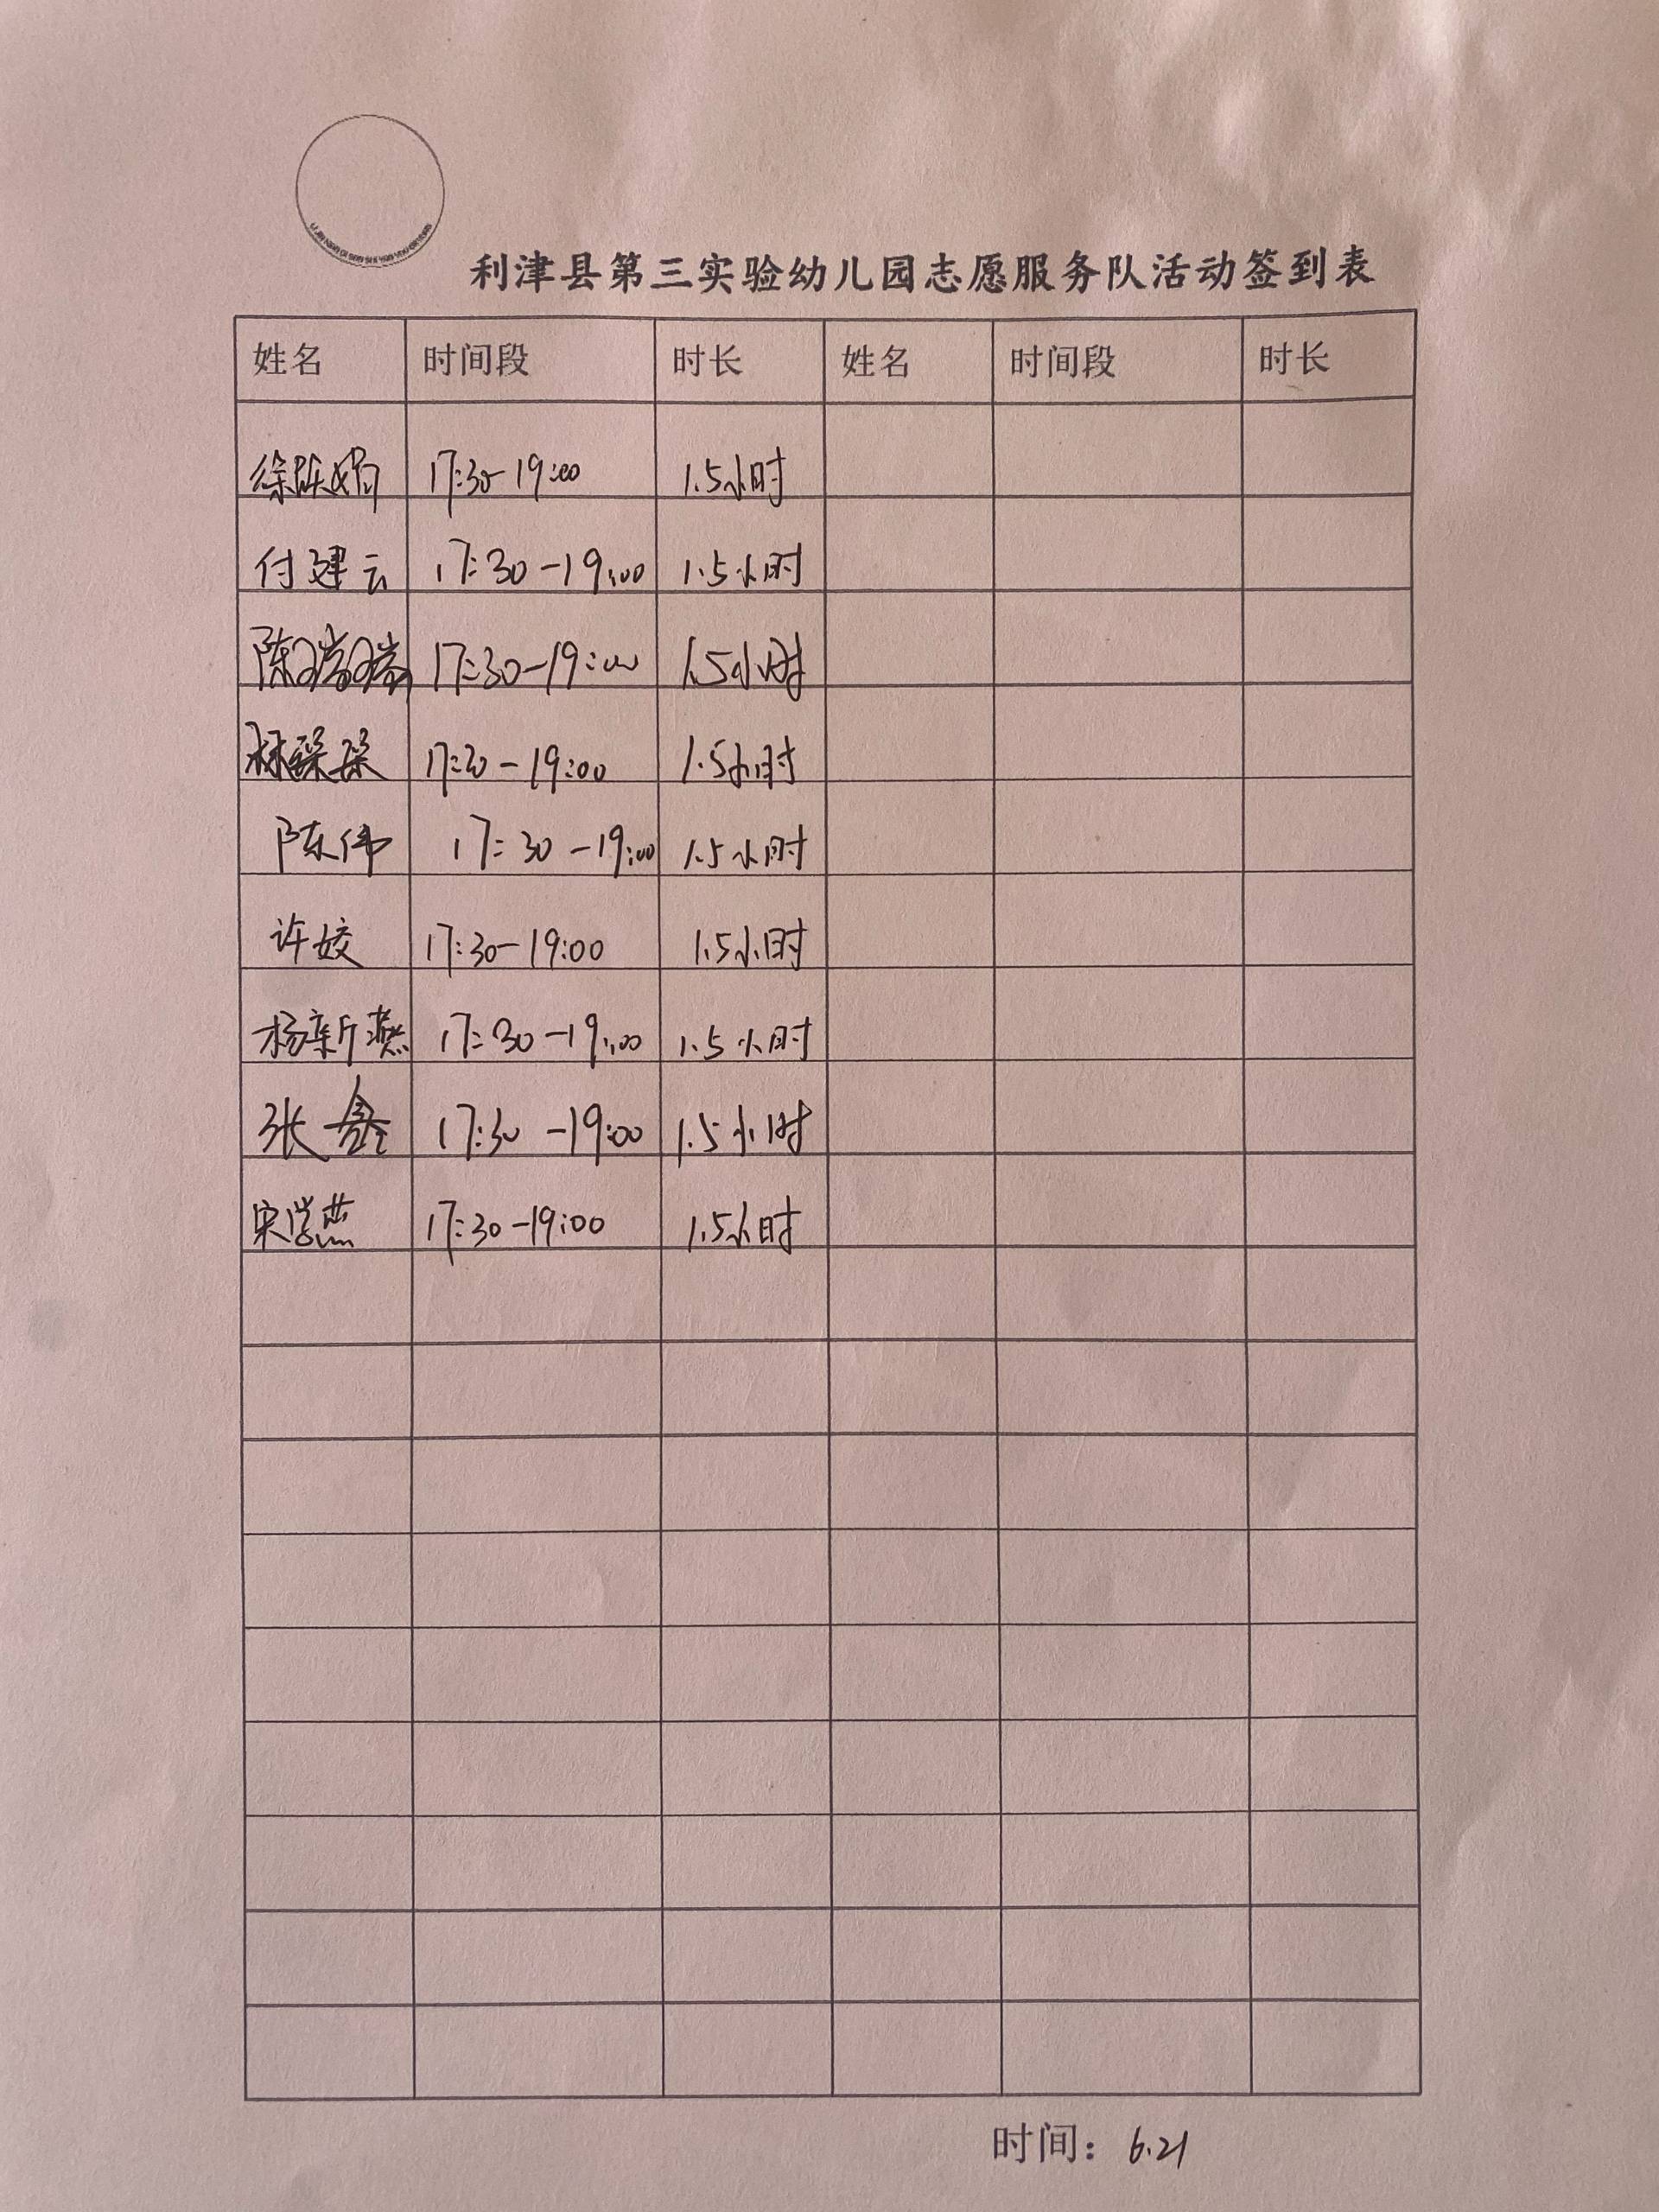 利津县第三实验幼儿园志愿服务队活动签到表
姓名 时间段 时长 姓名 时间段 时长
徐 娟 17:30-19:00 1.5小时
付建云 17:30-19:00 1.5小时
陈瑞瑞 17:30-19:00 1.5小时
林琛琛 17:30-19:00 1.5小时
陈伟 17:30-19:00 1.5小时
许姣 17:30-19:00 1.5小时
杨新燕 17:30-19:00 1.5小时
张鑫 17:30-19:00 1.5小时
宋学燕 17:30-19:00 1.5小时
时间：6.21